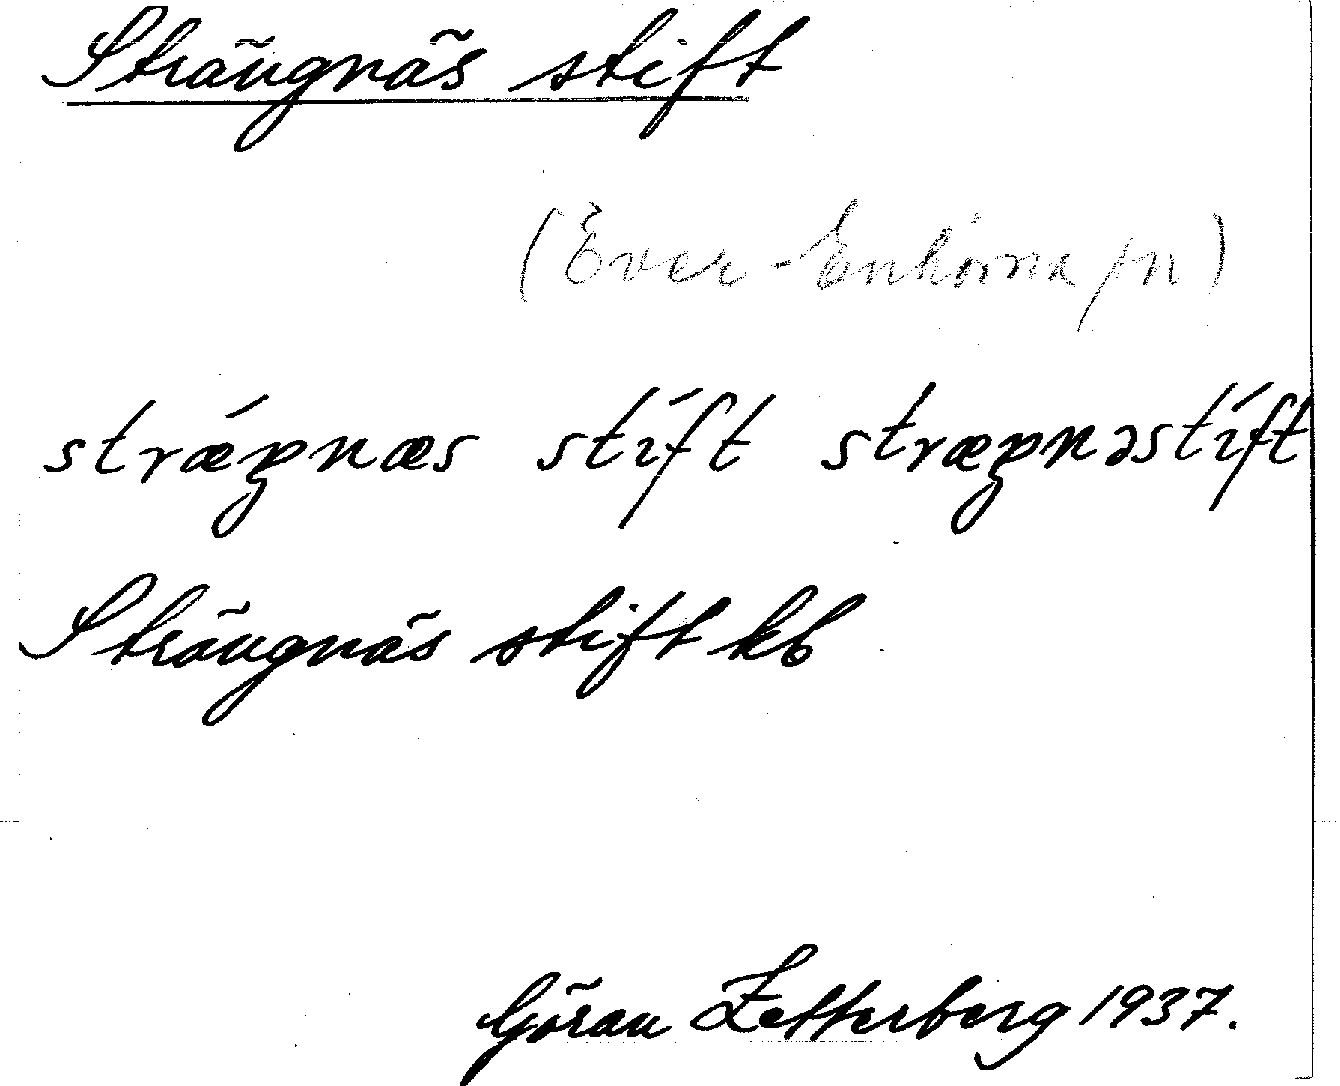 Strängnäs stift
(Över-Enhörna sn)
strǽŋnæs stíft stræŋnəstíft
Strängnäs stift kb
Göran Zetterberg 1937.